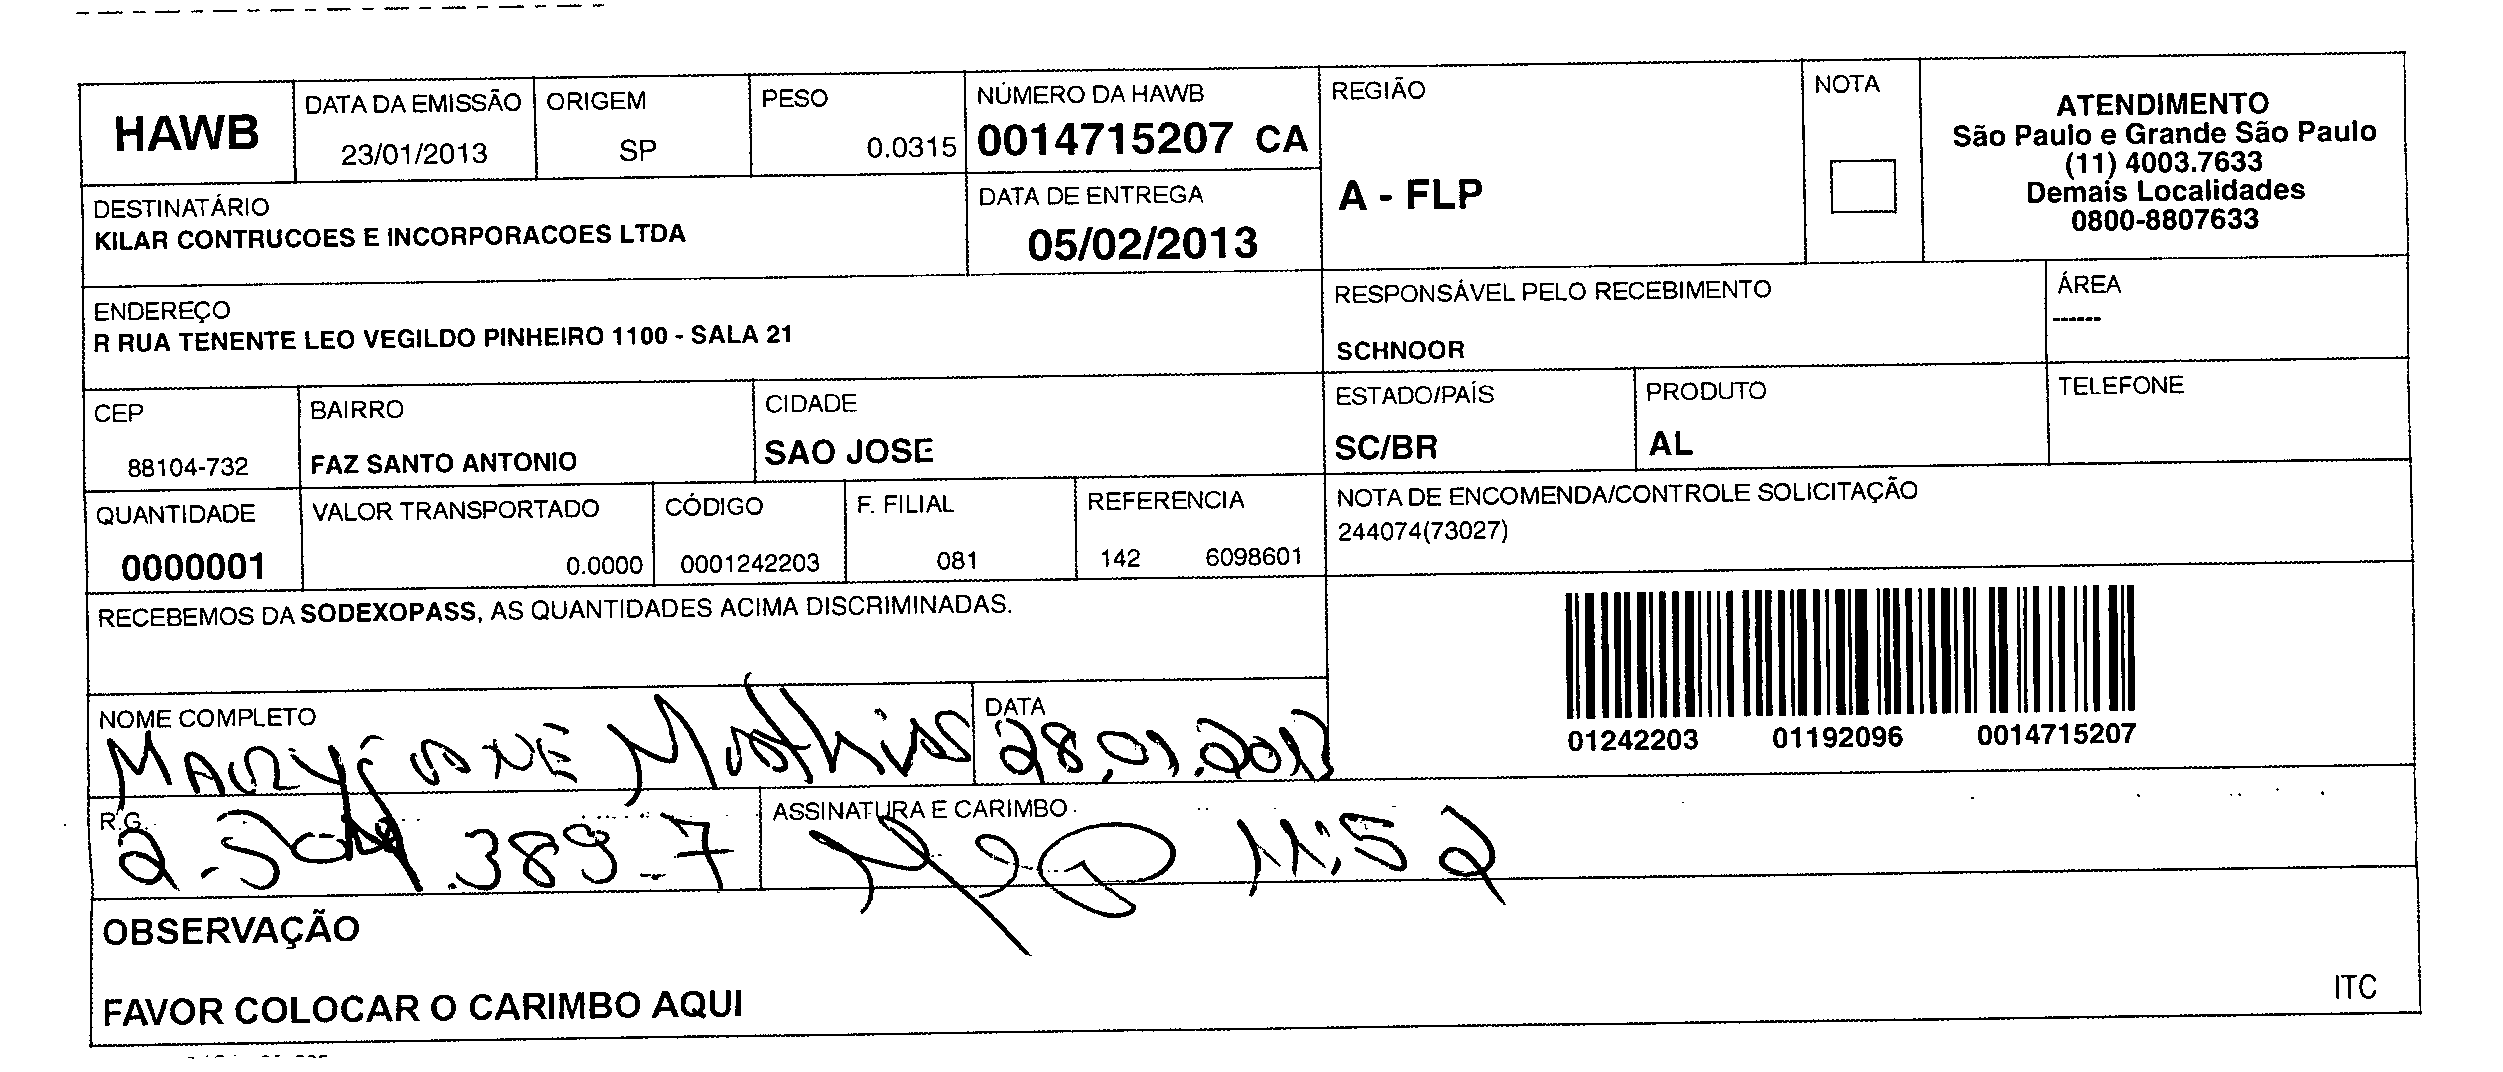 HAWB
DATA DA EMISSÃO
23/01/2013
ORIGEM
SP
PESO
0.0315
NÚMERO DA HAWB
0014715207 CA
REGIÃO
A - FLP
NOTA
ATENDIMENTO
São Paulo e Grande São Paulo
(11) 4003.7633
Demais Localidades
0800-8807633
DESTINATÁRIO
KILAR CONTRUCOES E INCORPORACOES LTDA
DATA DE ENTREGA
05/02/2013
ENDEREÇO
R RUA TENENTE LEO VEGILDO PINHEIRO 1100 - SALA 21
RESPONSÁVEL PELO RECEBIMENTO
SCHNOOR
ÁREA
------
CEP
88104-732
BAIRRO
FAZ SANTO ANTONIO
CIDADE
SAO JOSE
ESTADO/PAÍS
SC/BR
PRODUTO
AL
TELEFONE
QUANTIDADE
0000001
VALOR TRANSPORTADO
0.0000
CÓDIGO
0001242203
F. FILIAL
081
REFERENCIA
142 6098601
NOTA DE ENCOMENDA/CONTROLE SOLICITAÇÃO
244074(73027)
RECEBEMOS DA SODEXOPASS, AS QUANTIDADES ACIMA DISCRIMINADAS.
01242203 01192096 0014715207
NOME COMPLETO
Mathias
DATA
28.01.2013
R.G.
ASSINATURA E CARIMBO
11:52
OBSERVAÇÃO
FAVOR COLOCAR O CARIMBO AQUI
ITC